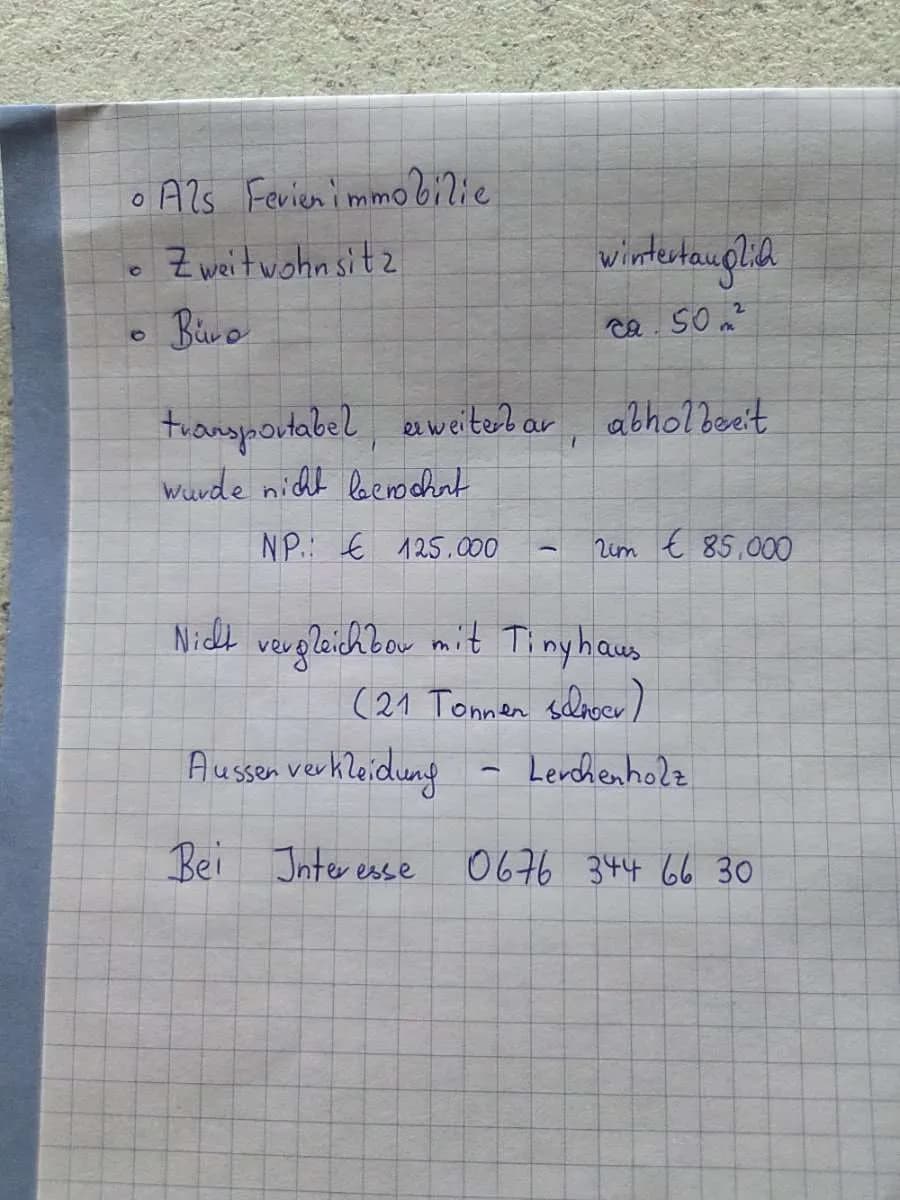 • Als Ferienimmobilie
• Zweitwohnsitz wintertauglich
• Büro ca. 50 m²
transportabel, erweiterbar, abholbereit
wurde nicht bewohnt
NP.: € 125.000 - um € 85.000
Nicht vergleichbar mit Tinyhaus
(21 Tonnen schwer)
Aussenverkleidung - Lerchenholz
Bei Interesse 0676 344 66 30